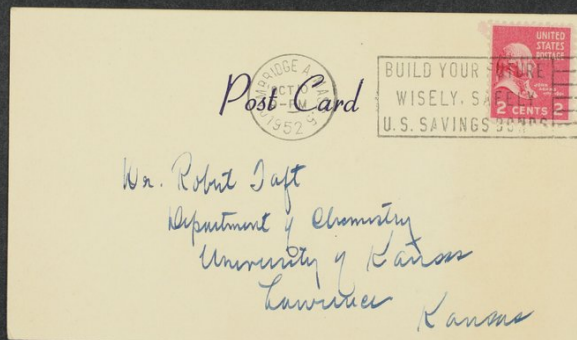 UNITED
STATES
POSTAGE
2 CENTS 2
BRIDGE A
OCT
PM
1952
BUILD YOUR FUTURE
WISELY, SAFELY
U.S. SAVINGS BONDS
Post Card
Dr. Robert Taft
Department of Chemistry
University of Kansas
Lawrence
Kansas